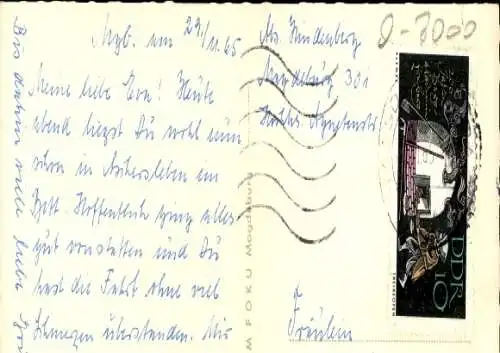 Mgb. am 29/11.65
Meine liebe Eva! Heute
abend liegst Du wohl nun
schon in Aschersleben im
Bett. Hoffentlich ging alles
gut vonstatten und Du
hast die Fahrt ohne viel
Schmerzen überstanden. Wir
Bis dahin viele liebe
Abs. Hindenberg
Magdeburg 301
Fräulein
MFOKU Magdeburg
0-8000
DDR
10